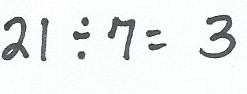 21 ÷ 7 = 3